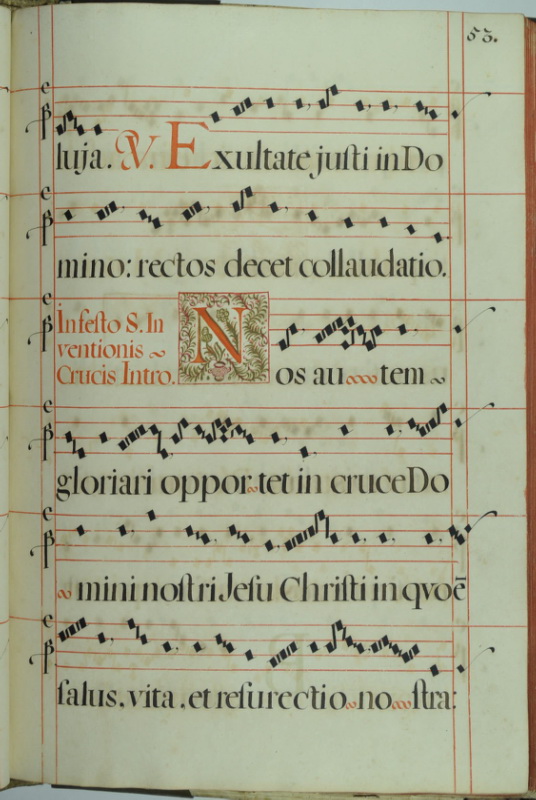 53.
luja. V. Exultate juſti in Do
mino: rectos decet collaudatio.
In feſto S. In
ventionis ~
Crucis Intro.
Nos au~~tem ~
gloriari oppor~tet in cruce Do
~ mini noſtri Jeſu Chriſti in qvo ē
ſalus. vita. et reſurectio~no~ſtra: